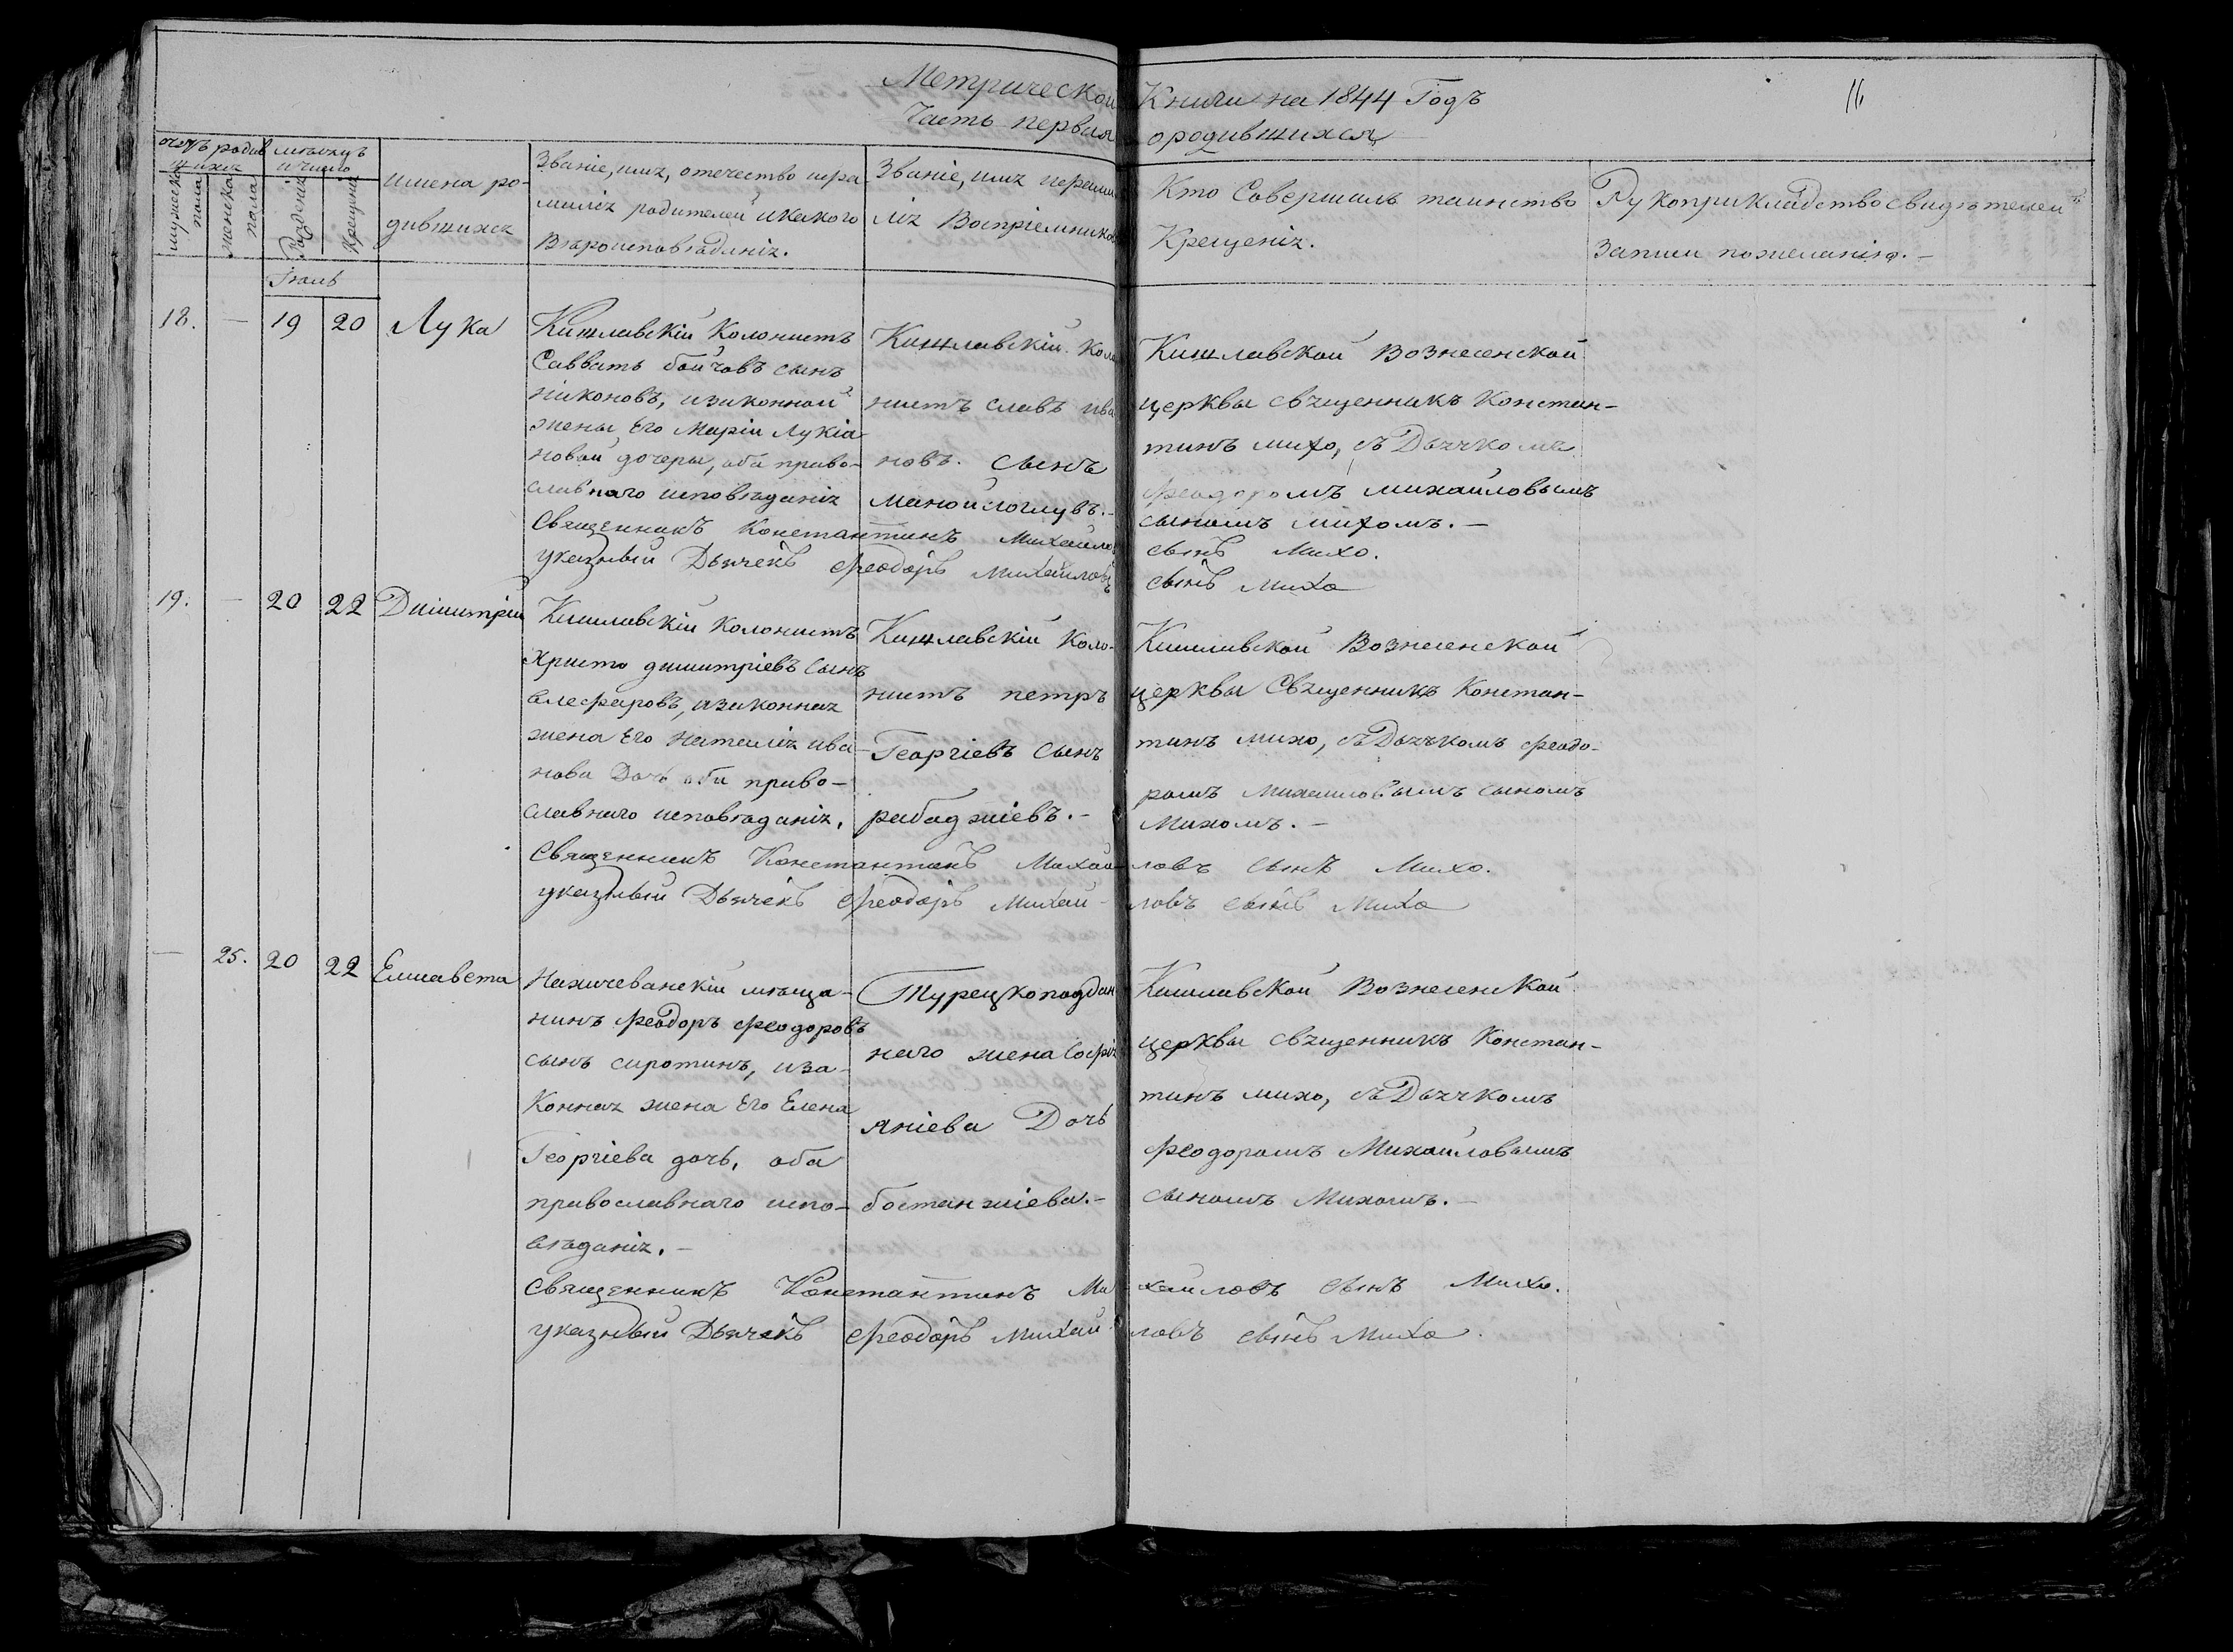 Метрической Книги на 1844 Годъ
Часть первая ородившихся
16
счетъ родив
шихся
мѣсяцъ
и число
мужеска
пола
женска
пола
Рожденія
Крещенія
имена ро-
дившихся
Званіе, имя, отечество ифа-
милія родителей икакого
Вѣроисповѣданія.
Званіе, имя ифами
лія Воспріемниковъ
Кто Совершалъ таинство
Крещенія.
Рукоприкладство свидѣтелей
записи пожеланію.-
Іюль
18. — 19 20 Лука
Кишлавскій Колонистъ
Савватъ бойчовъ сынъ
никоновъ, изаконной
жены Его Маріи Лукіа-
новой дочери, оба право-
славнаго исповѣданія
Кишлавскій Коло
нистъ славъ ива
новъ. Сынъ
Манойлоглувъ.-
Кишлавской Вознесенской
церквы священникъ Констан-
тинъ михо, съ Дьячкомъ
феодоромъ михайловымъ
сыномъ михомъ.-
Священникъ Константинъ Михайловъ сынъ Михо.
указный Дьячекъ Феодоръ Михайловъ сынъ Михо
19. — 20 22 Димитрій
Кишлавскій Колонистъ
Христо димитріевъ сынъ
алефировъ, изаконная
жена Его Наталія ива-
нова Дочь оба право-
славнаго исповѣданія.
Кишлавскій Коло-
нистъ петръ
Георгіевъ сынъ
рабаджіевъ.-
Кишлавской Вознесенской
церквы Священникъ Констан-
тинъ михо, съ Дьячкомъ феодо-
ромъ Михайловымъ сыномъ
Михомъ.-
Священникъ Константинъ Михай-ловъ сынъ Михо.
указный Дьячекъ Феодоръ Михай-ловъ сынъ Михо
— 25. 20 22 Елисавета
Нахичеванскій мѣща-
нинъ феодоръ феодоровъ
сынъ сиротинъ, иза-
Конная жена Его Елена
Георгіева дочь, оба
православнаго испо-
вѣданія.-
Турецкоподдан
наго жена Софія
яніева Дочь
бостанжіева.-
Кишлавской Вознесенской
церквы священникъ Констан-
тинъ михо, съ Дьячкомъ
феодоромъ Михайловымъ
сыномъ Михомъ.-
Священникъ Константинъ Ми-хайловъ сынъ Михо.
указный Дьячекъ Феодоръ Михай-ловъ сынъ Михо